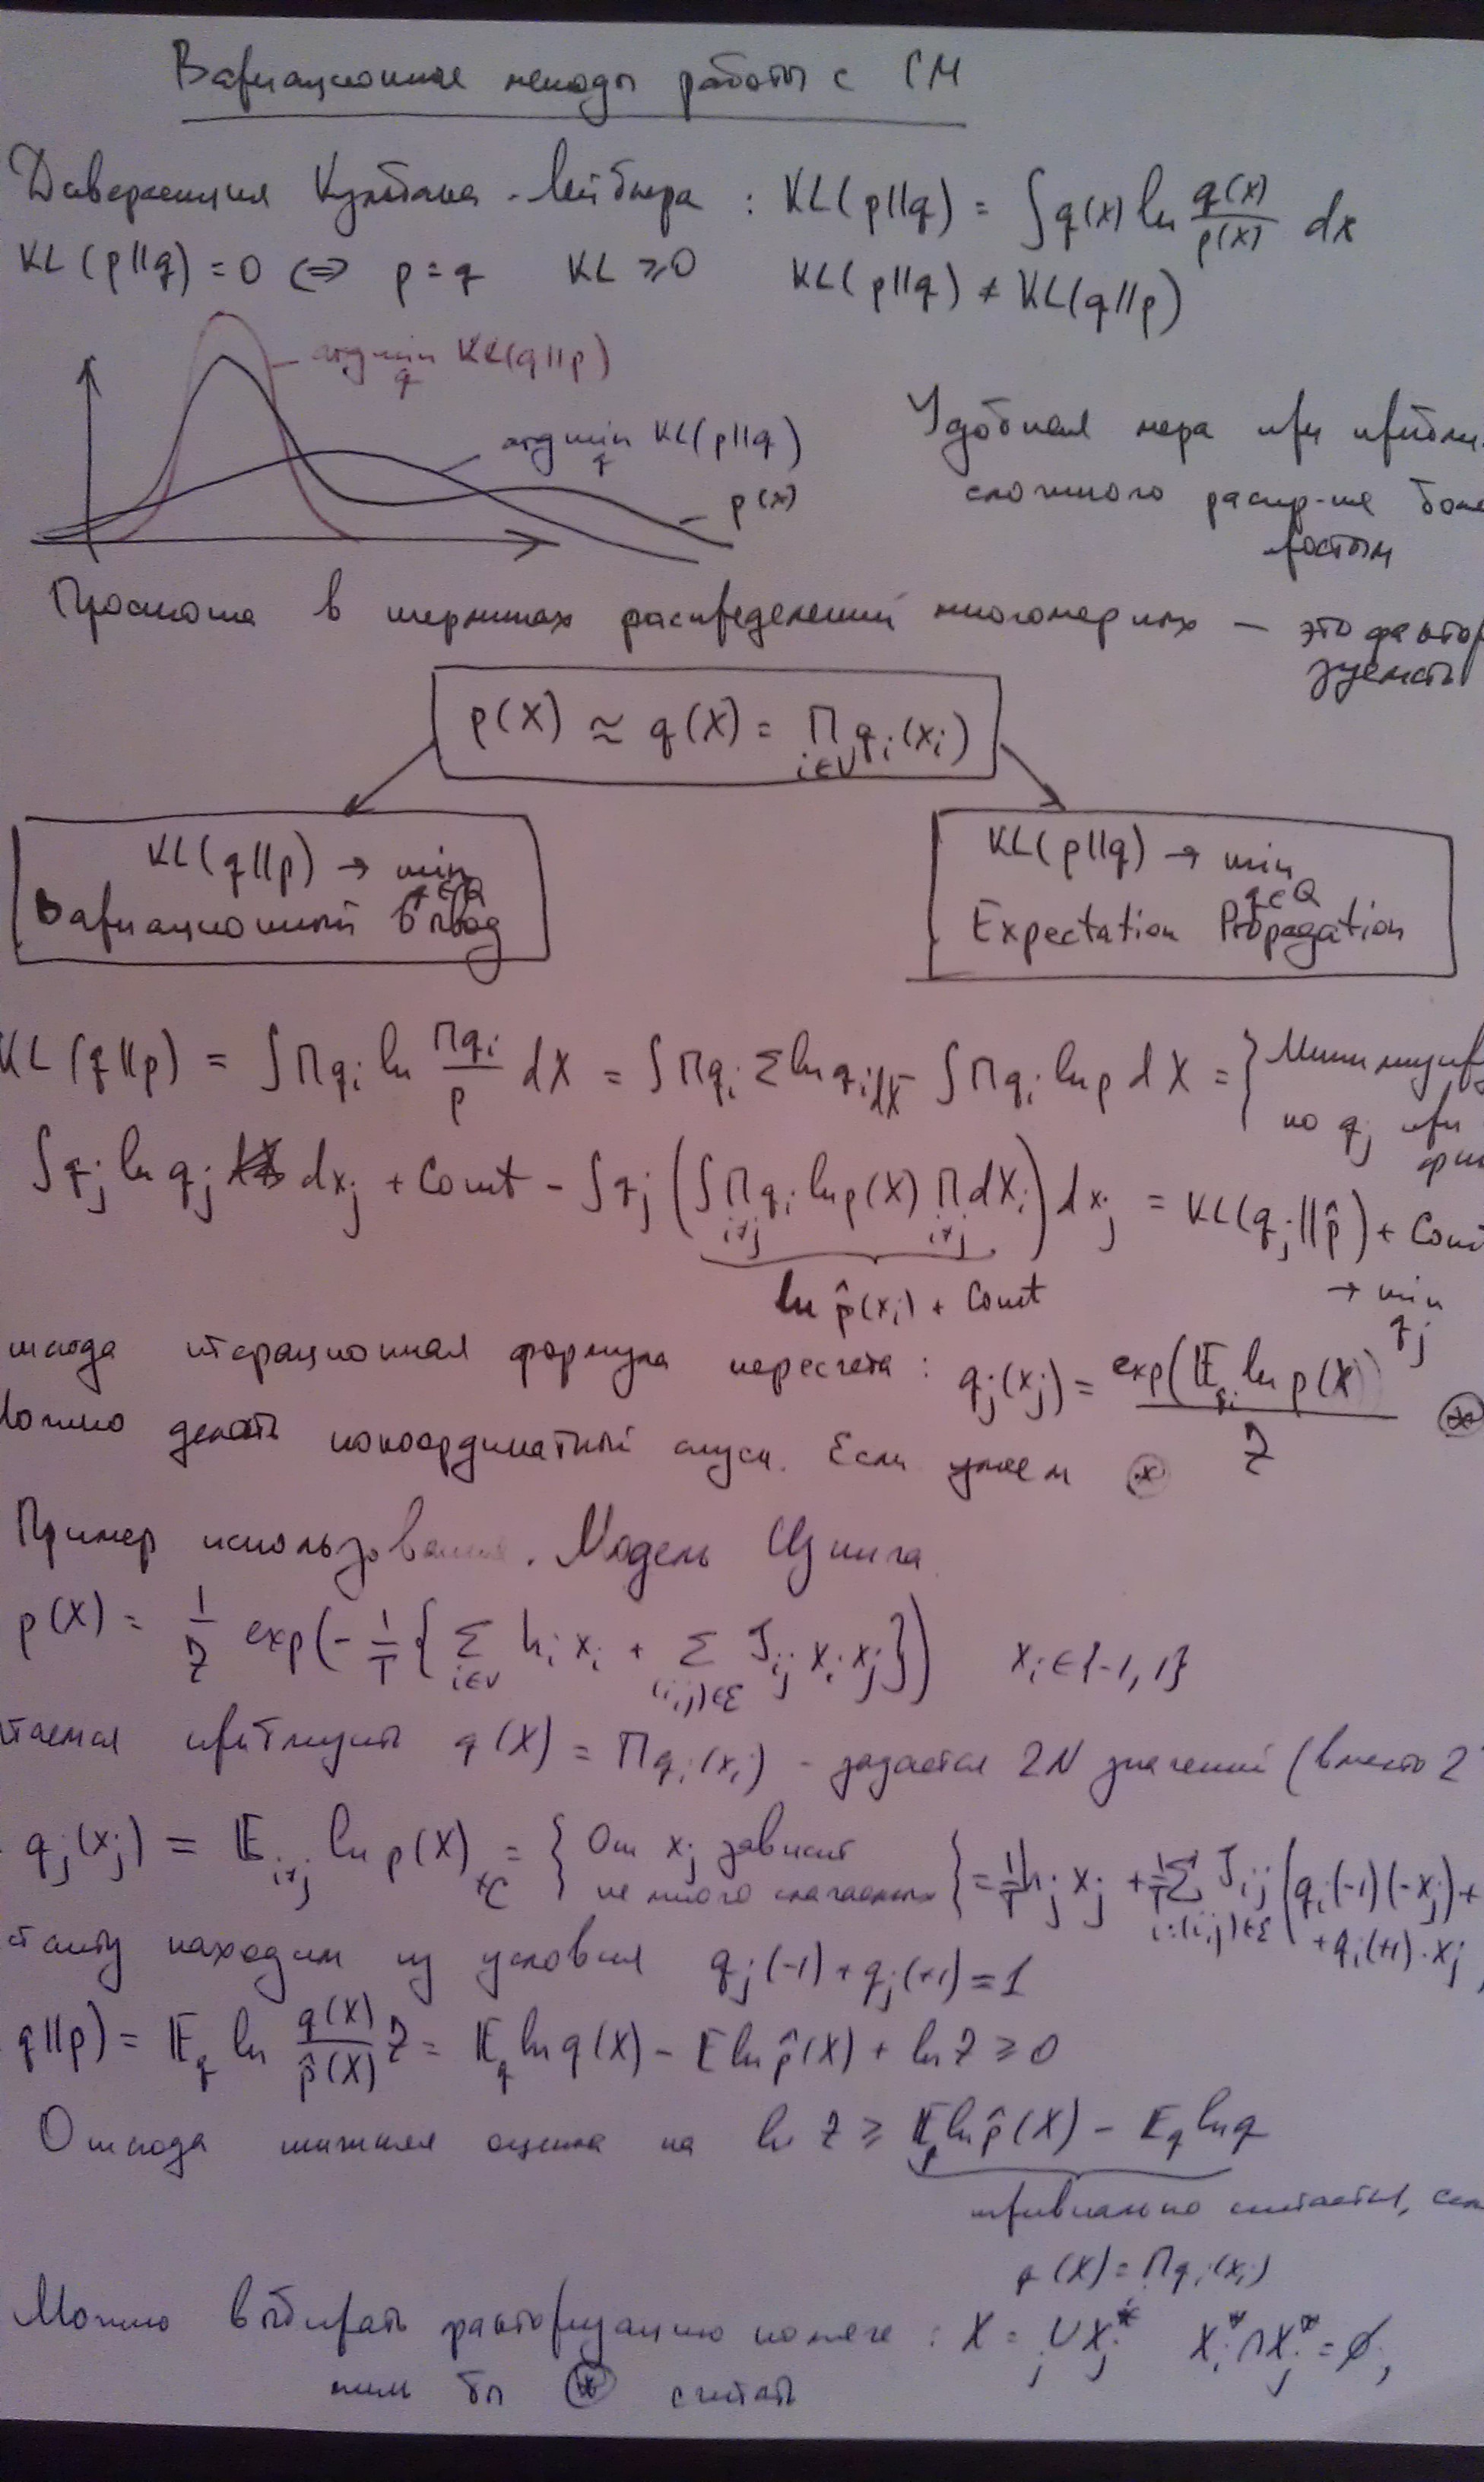 Вариационные методы работы с ГМ
Дивергенция Кульбака-Лейблера : KL(p||q) = ∫q(x) ln q(x)/p(x) dx
KL(p||q) = 0 ⇔ p = q KL ≥ 0 KL(p||q) ≠ KL(q||p)
argmin_q KL(q||p)
argmin_q KL(p||q)
p(x)
Удобная мера при приближ.
сложного распр-ия боле
простым
Простота в терминах распределений многомерных — это фактор
зуемость
p(X) ≃ q(X) = Π_{i∈V} q_i(x_i)
KL(q||p) → min_{q∈Q}
Вариационный вывод
KL(p||q) → min_{q∈Q}
Expectation Propagation
KL(q||p) = ∫Πq_i ln Πq_i/p dX = ∫Πq_i Σ ln q_i dX - ∫Πq_i ln p dX = } Минимизируе
по q_j при
∫q_j ln q_j dx_j + Const - ∫q_j (∫Π_{i≠j} q_i ln p(X) Π_{i≠j} dX_i) dx_j = KL(q_j||p̂) + Const
ln p̂(x_j) + Const
→ min_{q_j}
тсюда итерационная формула пересчета : q_j(x_j) = exp(𝔼_{q_i} ln p(X))/Z ⊛
Можно делать покоординатный спуск. Если умеем ⊛
Пример использования. Модель Изинга.
p(X) = 1/Z exp(-1/T {Σ_{i∈V} h_i x_i + Σ_{(i,j)∈ℰ} J_ij x_i x_j}) x_i ∈ {-1, 1}
таемся притянуть q(X) = Πq_i(x_i) - задается 2N значений (вместо 2
q_j(x_j) = 𝔼_{i≠j} ln p(X) + C = { От x_j зависит
не много слагаемых } = 1/T h_j x_j + 1/T Σ_{i:(i,j)∈ℰ} J_ij (q_i(-1)(-x_j) +
+ q_i(+1)·x_j
танту находим из условия q_j(-1) + q_j(+1) = 1
q||p) = 𝔼_q ln q(X)/p̂(X) Z = 𝔼_q ln q(X) - 𝔼 ln p̂(X) + ln Z ≥ 0
Отсюда нижняя оценка на ln Z ≥ 𝔼_q ln p̂(X) - 𝔼_q ln q
тривиально считается, есл
q(X) = Πq_i(x_i)
Можно выбирать факторизацию иначе : X = ∪_j X_j* X_i* ∩ X_j* = ∅,
лишь бы ⊛ считать